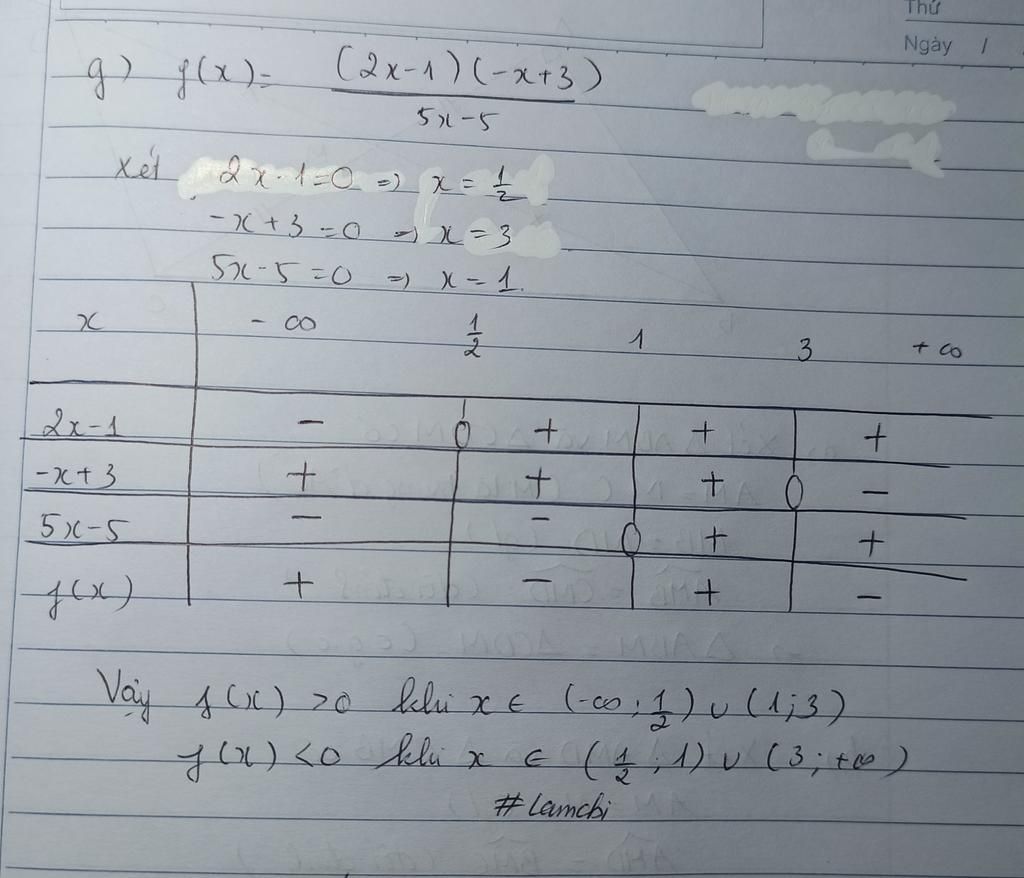 Thứ
Ngày /
g) f(x) = (2x-1)(-x+3) / 5x-5
Xét 2x-1=0 => x = 1/2
-x+3=0 => x=3
5x-5=0 => x=1.
x -∞ 1/2 1 3 +∞
2x-1 - 0 + + +
-x+3 + + + 0 -
5x-5 - - 0 + +
f(x) + - + -
Vậy f(x) >0 khi x ∈ (-∞; 1/2) ∪ (1;3)
f(x) <0 khi x ∈ (1/2; 1) ∪ (3; +∞)
#Lamchi